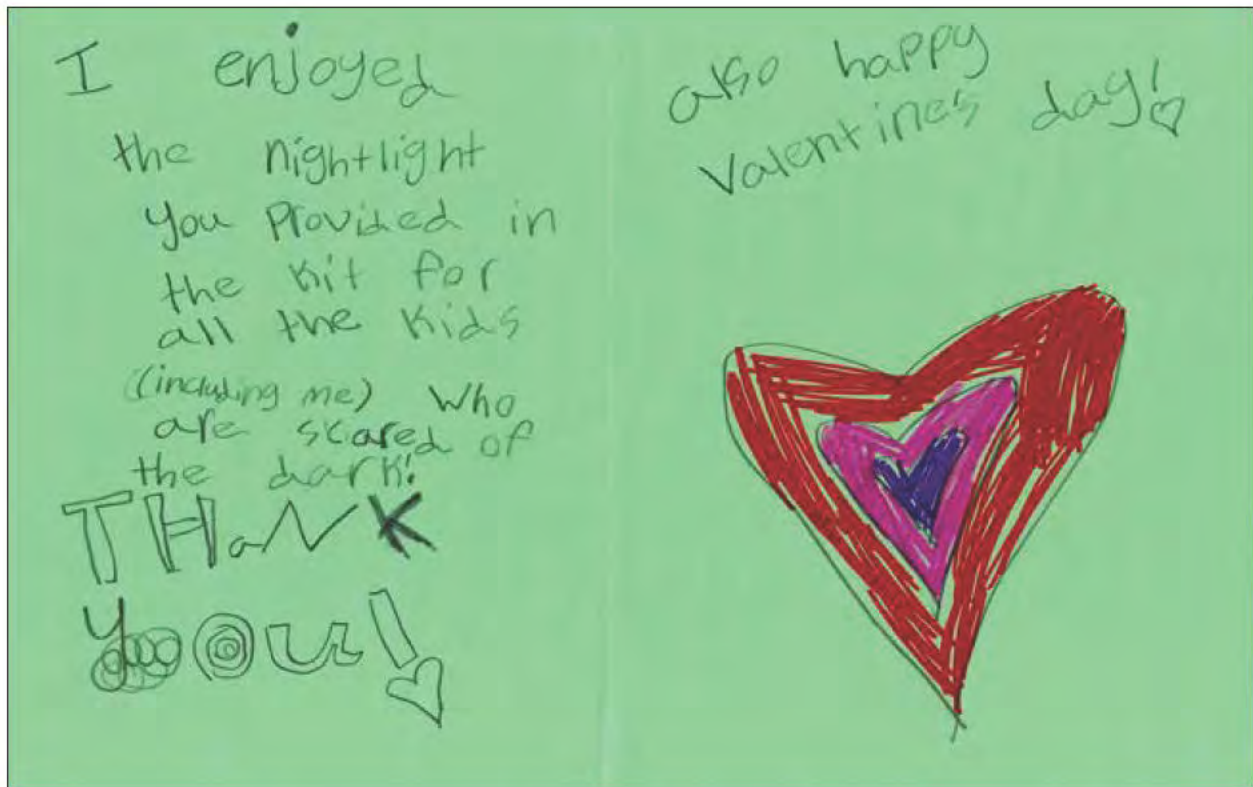 I enjoyed
the nightlight
you provided in
the kit for
all the kids
(including me) who
are scared of
the dark!
THaNK
you!
also happy
Valentines day!